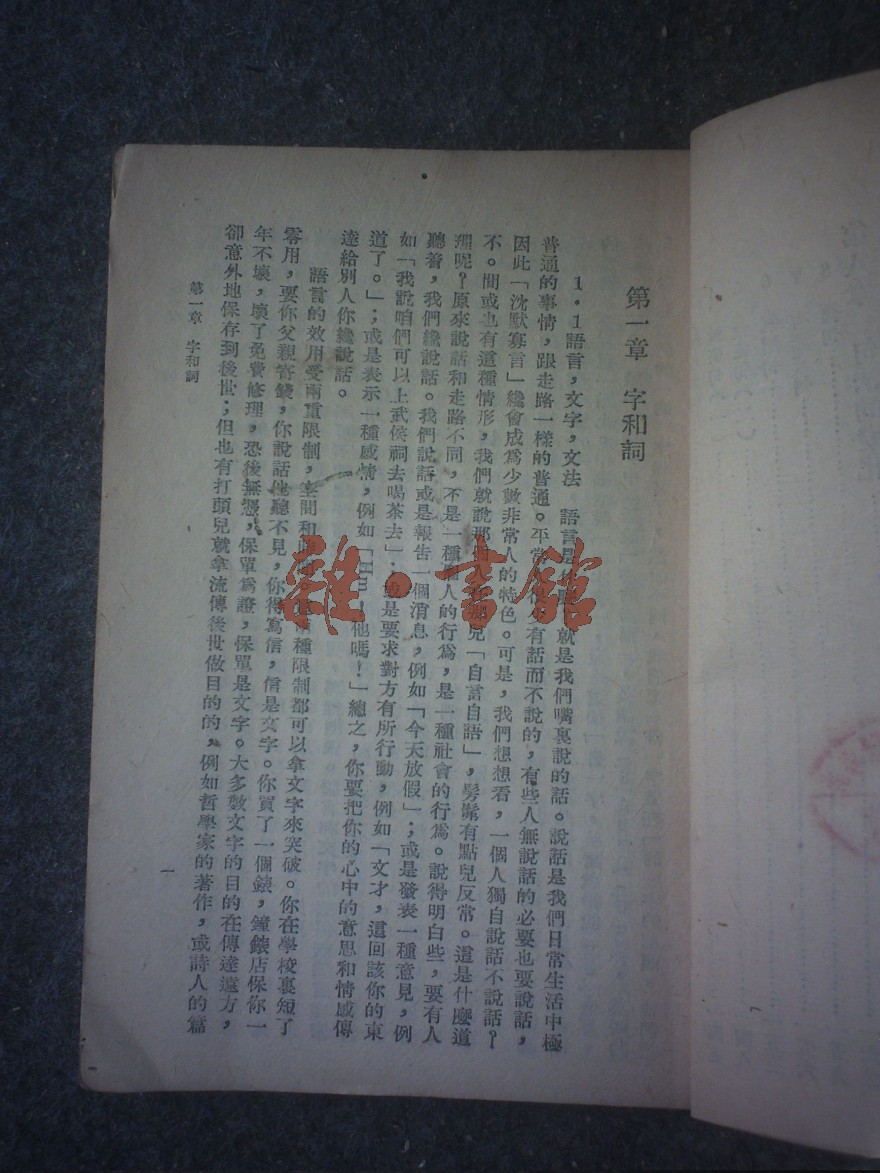 第一章　字和詞
1.1語言，文字，文法　語言是什麼？就是我們嘴裏說的話。說話是我們日常生活中極
普通的事情，跟走路一樣的普通。平常人很少有話而不說的，有些人無說話的必要也要說話，
因此「沈默寡言」纔會成爲少數非常人的特色。可是，我們想想看，一個人獨自說話不說話？
不。間或也有這種情形，我們就說那個人在那兒「自言自語」，髣髴有點兒反常。這是什麼道
理呢？原來說話和走路不同，不是一種個人的行爲，是一種社會的行爲。說得明白些，要有人
聽着，我們纔說話。我們說話或是報告一個消息，例如「今天放假」；或是發表一種意見，例
如「我說咱們可以上武侯祠去喝茶去」；或是要求對方有所行動，例如「文才，這回該你的東
道了。」；或是表示一種感情，例如「Hm！他嗎！」總之，你要把你的心中的意思和情感傳
達給別人你纔說話。
語言的效用受兩重限制，空間和時間。這兩種限制都可以拿文字來突破。你在學校裏短了
零用，要你父親寄錢，你說話他聽不見，你得寫信，信是文字。你買了一個錶，鐘錶店保你一
年不壞，壞了免費修理，恐後無憑，保單爲證，保單是文字。大多數文字的目的在傳達遠方，
卻意外地保存到後世；但也有打頭兒就拿流傳後世做目的的，例如哲學家的著作，或詩人的篇
第一章　字和詞
一
雜·書館